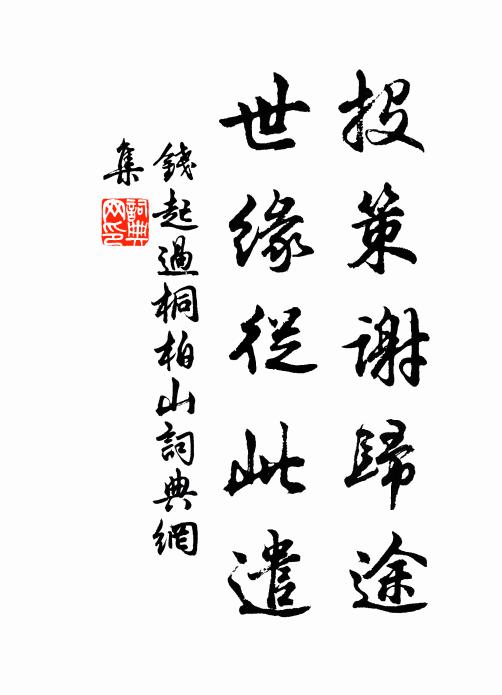 投策謝歸途
世緣從此遣
錢起過桐柏山詞典網
集
詞典
网印